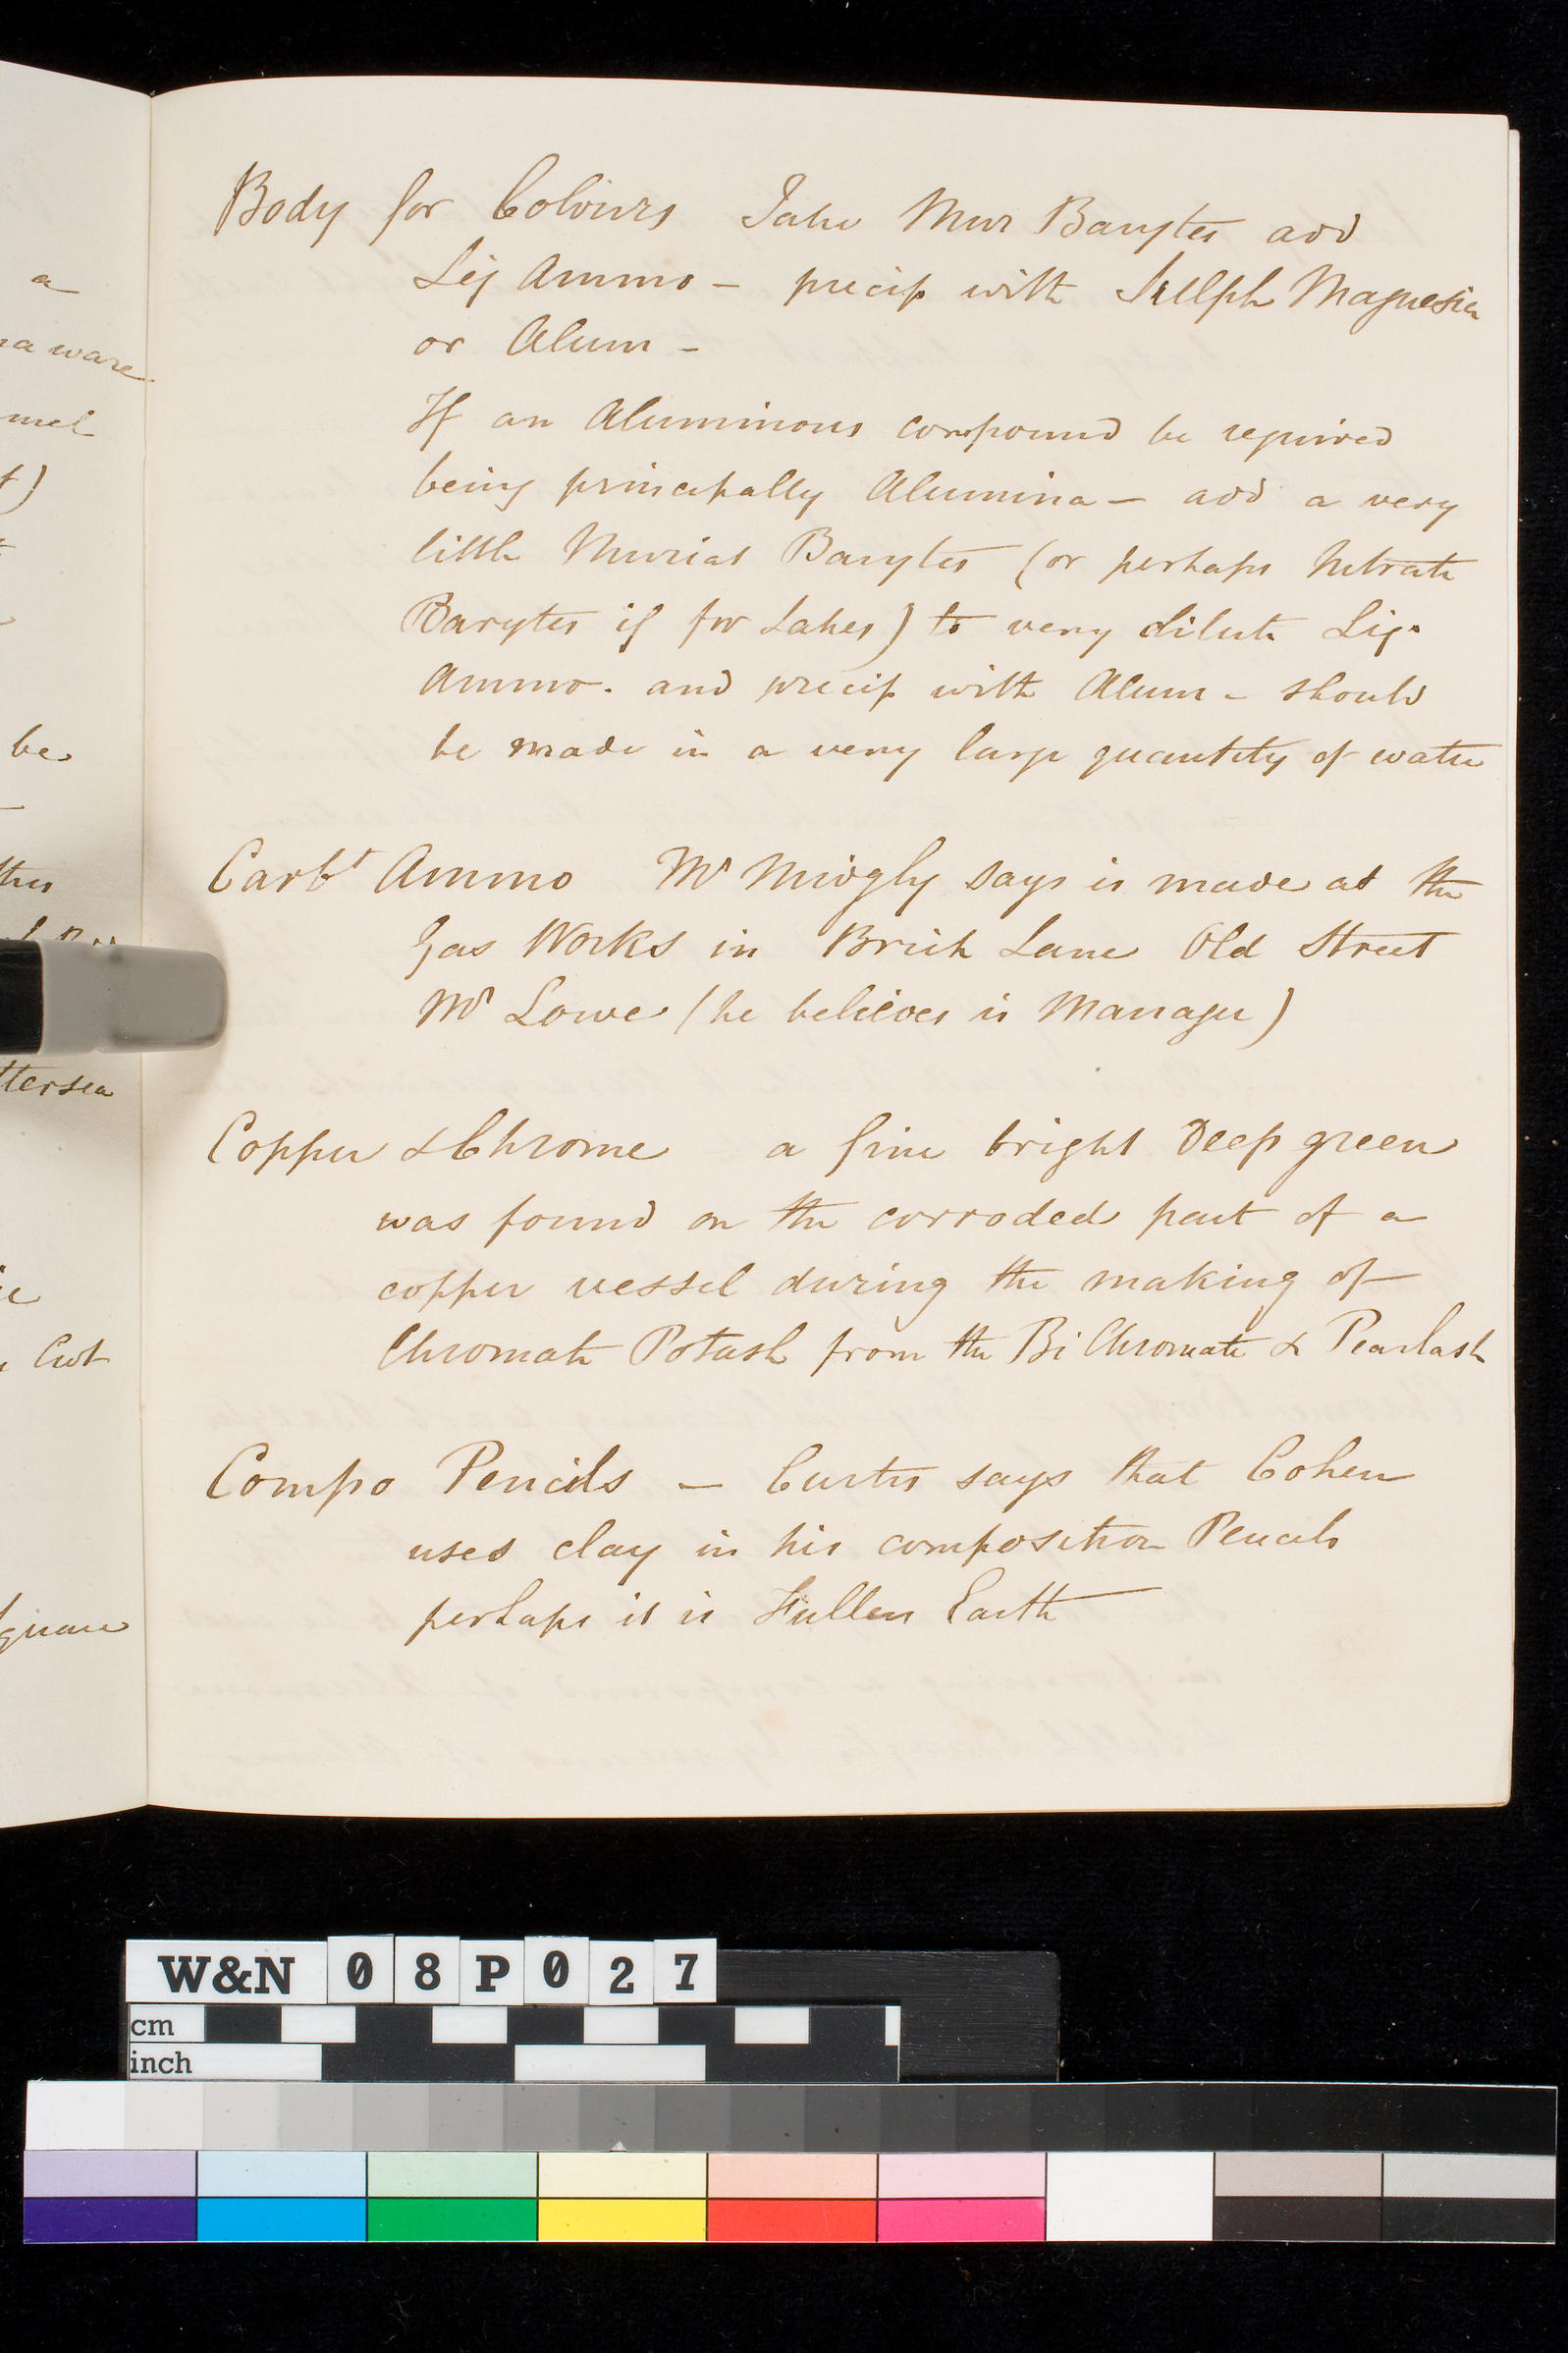 Body for Colours Take Mur Barytes add
Liq Ammo - precip with Sulph Magnesia
or Alum -
If an Aluminous compound be required
being principally Alumina - add a very
little Muriat Barytes (or perhaps Nitrate
Barytes if for Lakes) to very dilute Liq.
Ammo. and precip with Alum - should
be made in a very large quantity of water
Carbt Ammo Mr Midgly says is made at the
Gas Works in Brick Lane Old Street
Mr Lowe (he believes is Manager)
Copper & Chrome a fine bright Deep green
was found on the corroded part of a
copper vessel during the making of
Chromate Potash from the Bi Chromate & Pearlash
Compo Pencils - Curtis says that Cohen
uses clay in his composition Pencils
perhaps it is Fullers Earth
a
ware
be
ttersea
Cut
W&N 08P027
cm
inch